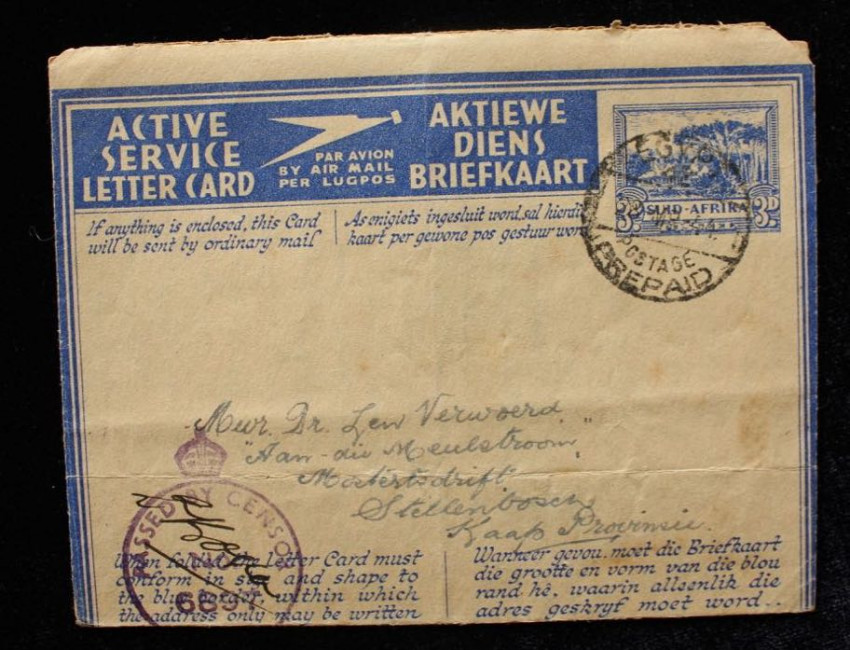 ACTIVE
SERVICE
LETTER CARD
PAR AVION
BY AIR MAIL
PER LUGPOS
AKTIEWE
DIENS
BRIEFKAART
3D SUID-AFRIKA 3D
POSTAGE
PREPAID
If anything is enclosed, this Card
will be sent by ordinary mail
As enigiets ingesluit word, sal hierdi
kaart per gewone pos gestuur wor
Mevr. Dr. Len Verwoerd
"Aan-die Meulstroom"
Mostertsdrift
Stellenbosch
Kaap Provinsie.
PASSED BY CENSOR
When folded the Letter Card must
conform in size and shape to
the blue border, within which
the address only may be written
Wanneer gevou, moet die Briefkaart
die grootte en vorm van die blou
rand hê, waarin alleenlik die
adres geskryf moet word..